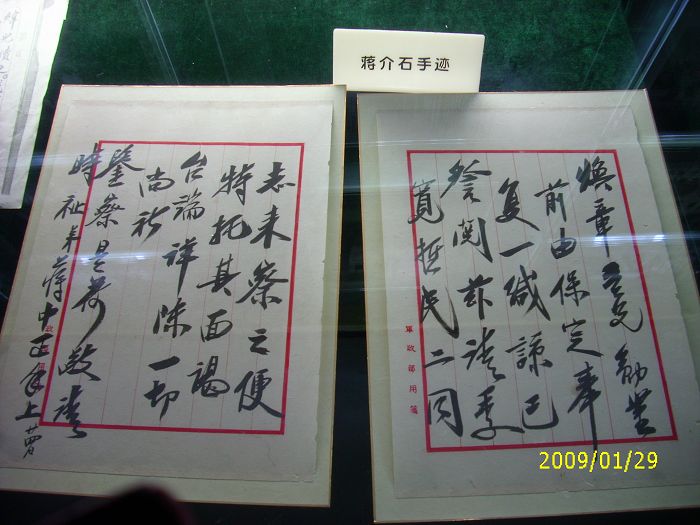 蒋介石手迹
焕章吾兄勋鉴
前由保定奉
复一缄谅已
詧阅兹请季
宽哲民二同
军政部用笺
志来察之便
特托其面谒
台端详陈一切
尚祈
鉴察是荷敬请
时祉弟蒋中正拜上
2009/01/29